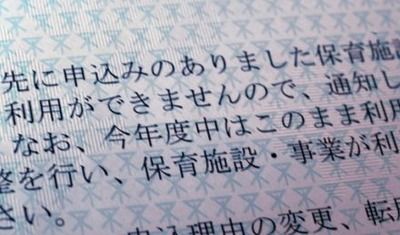 先に申込みのありました保育施設
利用ができませんので、通知し
なお、今年度中はこのまま利用
整を行い、保育施設・事業が利
さい。
申込理由の変更、転居